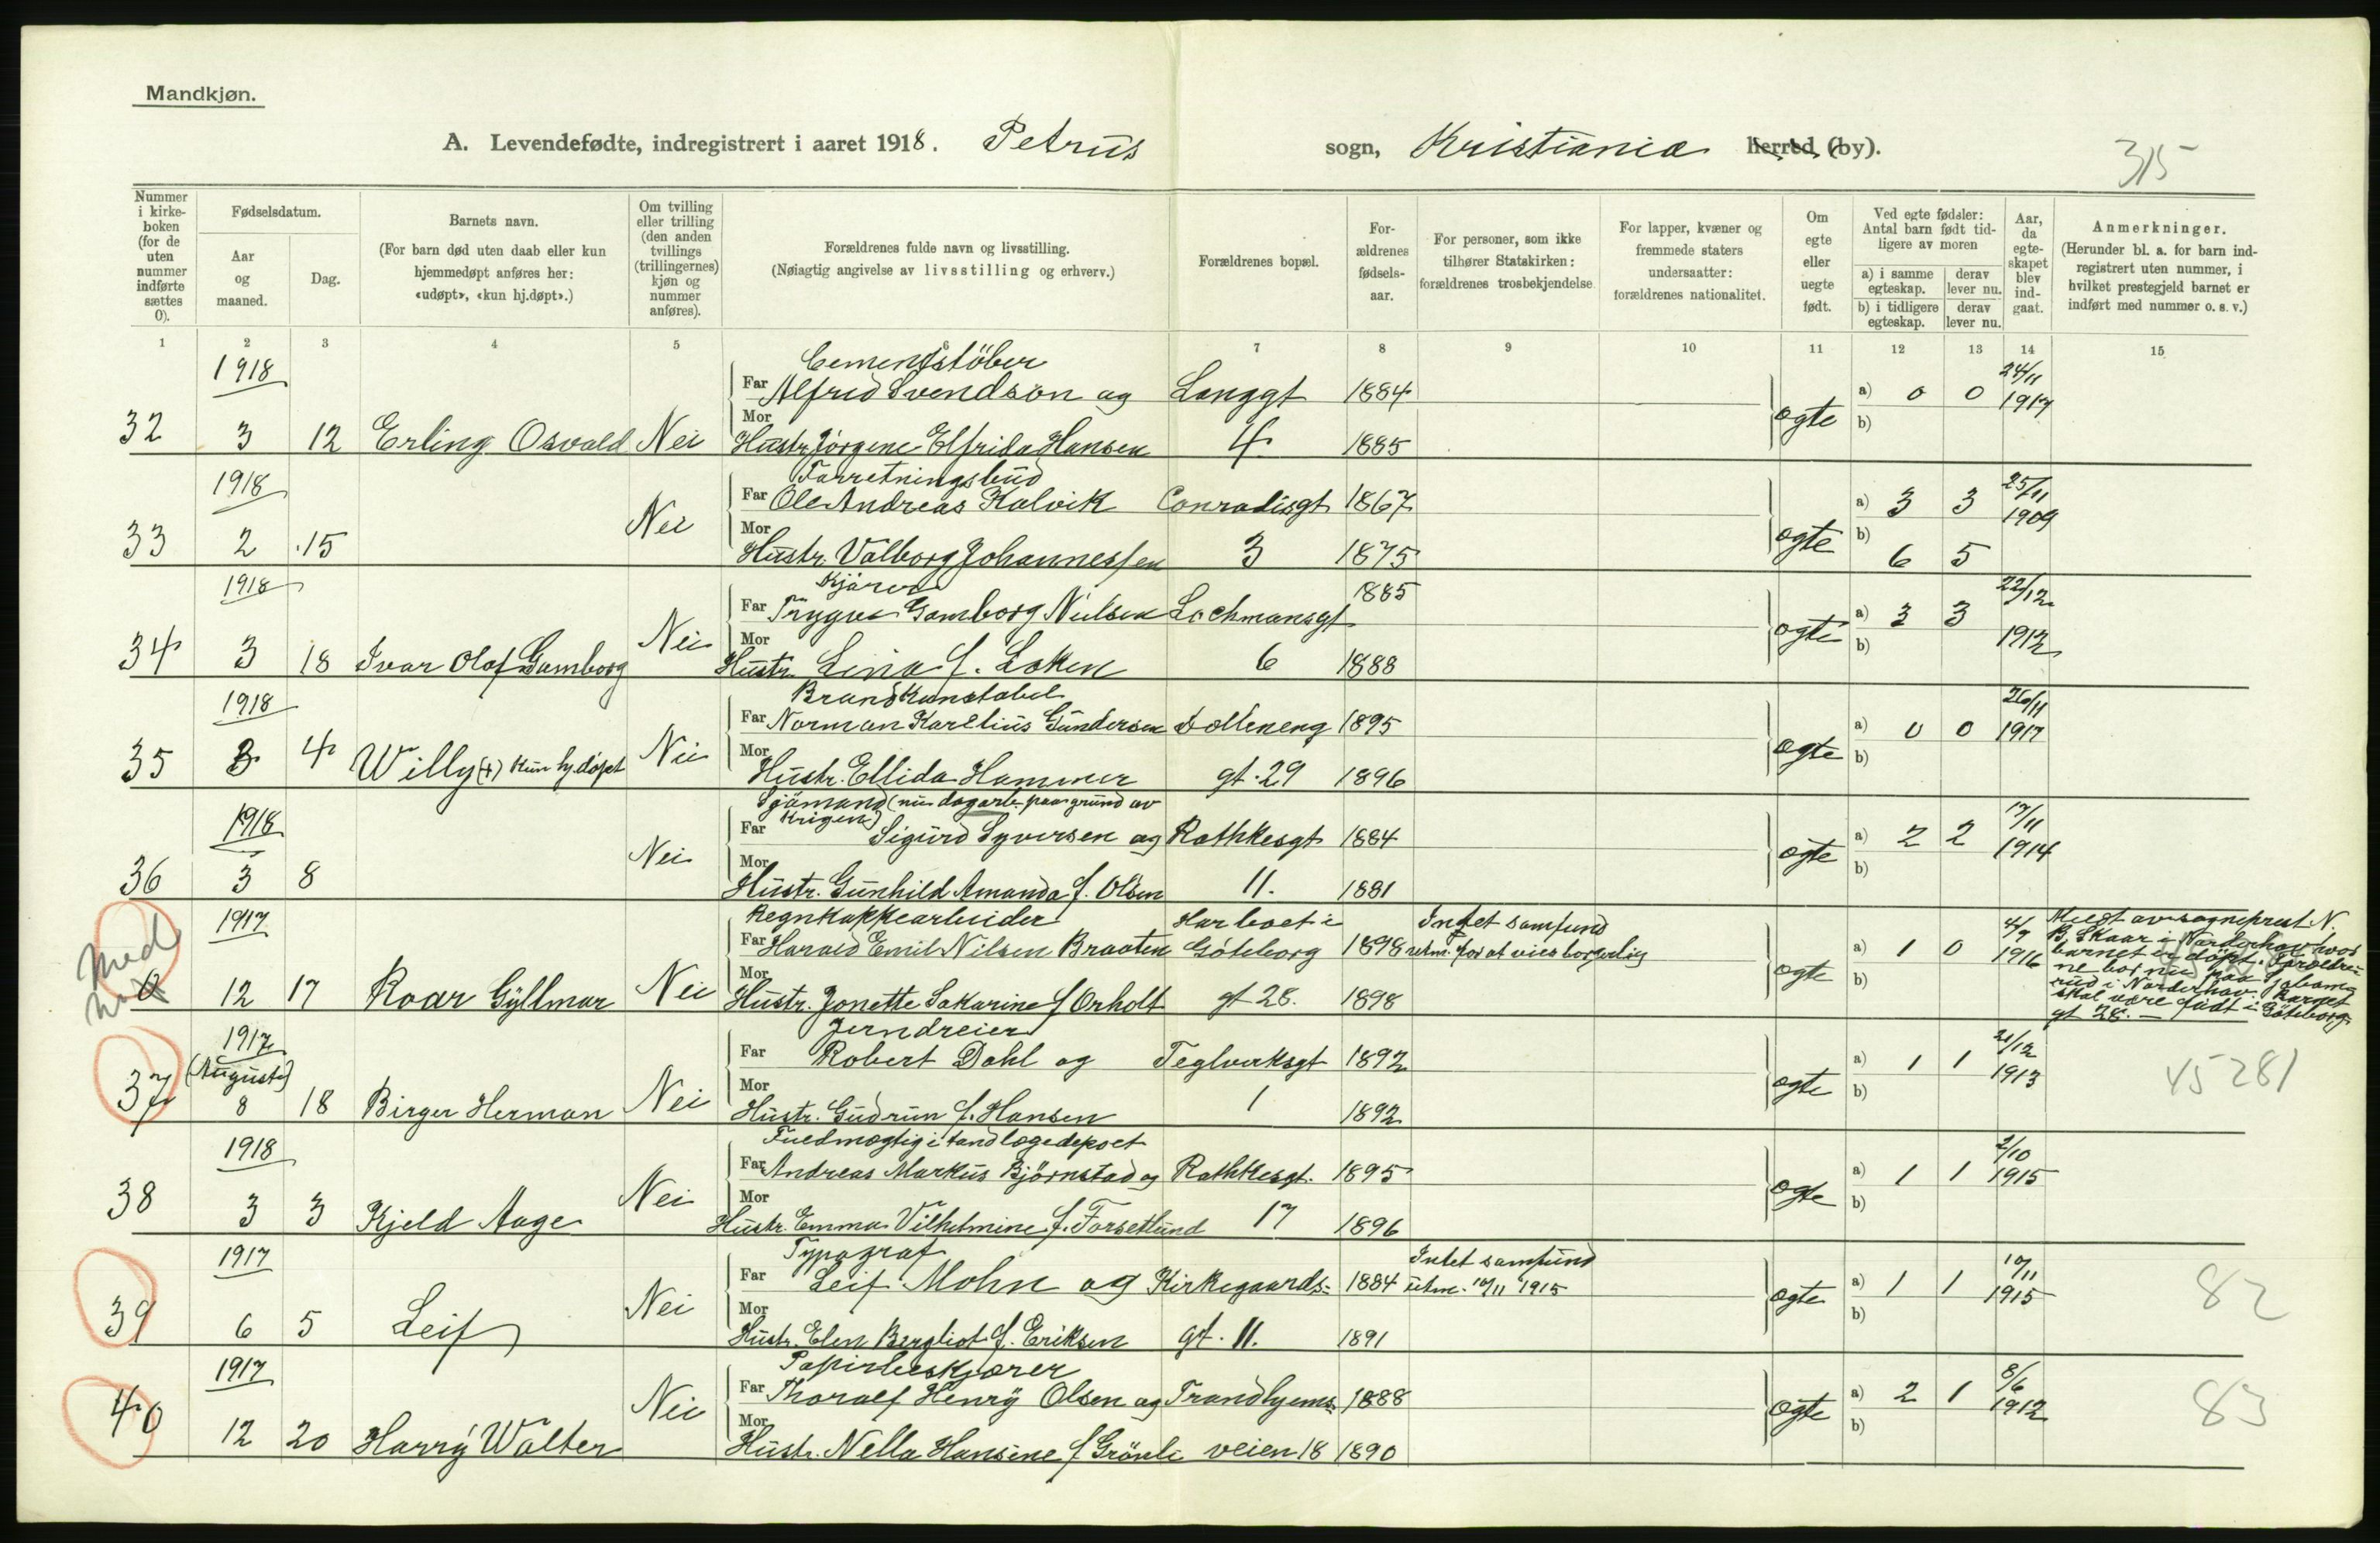 Mandkjøn.
A. Levendefødte, indregistrert i aaret 1918. Petrus sogn, Kristiania herred (by).
315
Nummer i kirke-boken (for de uten nummer indførte sættes 0).
Fødselsdatum.
Aar og maaned.
Dag.
Barnets navn.
(For barn død uten daab eller kun hjemmedøpt anføres her: «udøpt», «kun hj.døpt».)
Om tvilling eller trilling (den anden tvillings (trillingernes) kjøn og nummer anføres).
Forældrenes fulde navn og livsstilling.
(Nøiagtig angivelse av livsstilling og erhverv.)
Forældrenes bopæl.
For-ældrenes fødsels-aar.
For personer, som ikke tilhører Statskirken: forældrenes trosbekjendelse
For lapper, kvæner og fremmede staters undersaatter: forældrenes nationalitet.
Om egte eller uegte født.
Ved egte fødsler: Antal barn født tid-ligere av moren
a) i samme egteskap. derav lever nu.
b) i tidligere egteskap. derav lever nu.
Aar, da egte-skapet blev ind-gaat.
Anmerkninger.
(Herunder bl. a. for barn ind-registrert uten nummer, i hvilket prestegjeld barnet er indført med nummer o. s. v.)
1 2 3 4 5 7 8 9 10 11 12 13 14 15
1918 Cementstöber 24/11
Far Alfred Svendsen og Langgt 1884 a) 0 0 1917
32 3 12 Erling Osvald Nei Mor Hustr. Jörgine Elfrida Hansen 4 1885 egte b)
1918 Forretningsbud 25/11
Far Ole Andreas Kalvik Conradisgt 1867 a) 3 3 1909
33 2 15 Nei Mor Hustr. Valborg Johannessen 3 1875 egte b) 6 5
1918 Kjører 1885 22/12
Far Trygve Gamborg Nielsen Lochmansgt a) 3 3
34 3 18 Ivar Olof Gamborg Nei Mor Hustr. Lina f. Loken 6 1888 egte b) 1912
1918 Brandkonstabel 26/11
Far Norman Karelius Gundersen Tolleneng 1895 a) 0 0 1917
35 3 4 Willy (+) kun hj döpt Nei Mor Hustr. Ellida Hammer gt. 29 1896 egte b)
1918 Sjömand (nu dagarb. paa grund av krigen) 17/11
Far Sigurd Syversen og Rathkesgt 1884 a) 2 2 1914
36 3 8 Nei Mor Hustr. Gunhild Amanda f. Olsen 11. 1881 egte b)
1917 Regnkappearbeider Har boet i Intet samfund 4/9
Far Harald Emil Nilsen Braaten Göteborg 1898 utm. for at vies borgerlig a) 1 0 1916
Med
0 12 17 Roar Gyllmar Nei Mor Hustr. Jonette Sakarine f Orholt gt 28. 1898 egte b)
Meldt av sogneprest N. B. Skaar i Norderhov hvor barnet er döpt. Foreldrene bor nu paa
i Norderhov. Barnet skal være födt i Göteborg gt 28. —
1917 Jerndreier 21/12
(August) Far Robert Dahl og Teglverksgt 1892 a) 1 1 1913
37 8 18 Birger Herman Nei Mor Hustr. Gudrun f. Hansen 1 1892 egte b) 45281
1918 Fuldmægtig i tandlægedepoet 2/10
Far Andreas Markus Björnstad og Rathkesgt. 1895 a) 1 1 1915
38 3 3 Kjeld Aage Nei Mor Hustr. Emma Vilhelmine f. Forsetlund 17 1896 egte b)
1917 Typograf Intet samfund 10/11
Far Leif Mohn og Kirkegaards- 1884 utm. 10/11 1915 a) 1 1 1915
39 6 5 Leif Nei Mor Hustr. Elen Bergliot f. Eriksen gt. 11. 1891 egte b) 82
1917 Papirbeskjærer 8/6
Far Thoralf Henry Olsen og Trondhjems- 1888 a) 2 1 1912
40 12 20 Harry Walter Nei Mor Hustr. Nella Hansine f Grönli veien 18 1890 egte b) 83